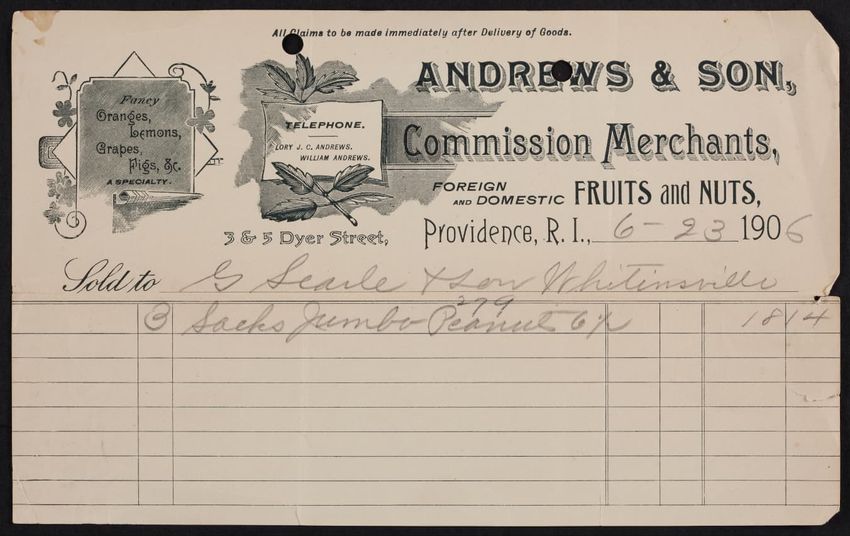 All Claims to be made immediately after Delivery of Goods.
Fancy
Oranges,
Lemons,
Grapes,
Figs, &c.
A SPECIALTY.
TELEPHONE.
LORY J. C. ANDREWS.
WILLIAM ANDREWS.
ANDREWS & SON,
Commission Merchants,
FOREIGN AND DOMESTIC FRUITS and NUTS,
3 & 5 Dyer Street, Providence, R. I., 6-23 1906
Sold to G Searle & Son Whitinsville
279
3 Sacks Jumbo Peanuts 6½ 18 14